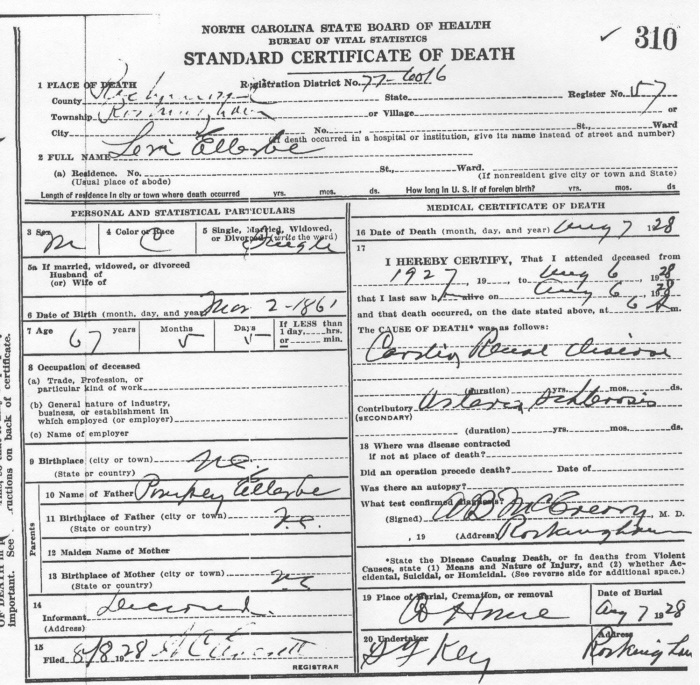 NORTH CAROLINA STATE BOARD OF HEALTH
BUREAU OF VITAL STATISTICS
STANDARD CERTIFICATE OF DEATH
✓ 310
1 PLACE OF DEATH Registration District No. 77-6016
County Richmond State Register No. 57
Township Rockingham or Village or
City No. St., Ward
(If death occurred in a hospital or institution, give its name instead of street and number)
2 FULL NAME Levi Ellerbe
(a) Residence. No. St., Ward.
(Usual place of abode) (If nonresident give city or town and State)
Length of residence in city or town where death occurred yrs. mos. ds. How long in U. S. if of foreign birth? yrs. mos. ds.
PERSONAL AND STATISTICAL PARTICULARS
3 Sex M 4 Color or Race C 5 Single, Married, Widowed, or Divorced (write the word) Single
5a If married, widowed, or divorced
Husband of
(or) Wife of
6 Date of Birth (month, day, and year) Mar 2-1861
7 Age 67 years Months 5 Days 5 If LESS than 1 day, hrs. or min.
8 Occupation of deceased
(a) Trade, Profession, or
particular kind of work
(b) General nature of industry,
business, or establishment in
which employed (or employer)
(c) Name of employer
9 Birthplace (city or town) N.C.
(State or country)
Parents
10 Name of Father Pompey Ellerbe
11 Birthplace of Father (city or town) N.C.
(State or country)
12 Maiden Name of Mother
13 Birthplace of Mother (city or town) N C
(State or country)
14
Informant
(Address)
15
Filed 8/8 1928
REGISTRAR
MEDICAL CERTIFICATE OF DEATH
16 Date of Death (month, day, and year) Aug 7 1928
17
I HEREBY CERTIFY, That I attended deceased from
1927, 19 , to Aug 6, 1928
that I last saw h alive on Aug 6, 1928
and that death occurred, on the date stated above, at 6
The CAUSE OF DEATH* was as follows:
Cardio Renal disease
(duration) yrs. mos. ds.
Contributory Arterio Sclerosis
(SECONDARY)
(duration) yrs. mos. ds.
18 Where was disease contracted
if not at place of death?
Did an operation precede death? Date of
Was there an autopsy?
What test confirmed diagnosis?
(Signed) McCreary M. D.
, 19 (Address) Rockingham
*State the Disease Causing Death, or in deaths from Violent
Causes, state (1) Means and Nature of Injury, and (2) whether Ac-
cidental, Suicidal, or Homicidal. (See reverse side for additional space.)
19 Place of Burial, Cremation, or removal Date of Burial
Home Aug 7 1928
20 Undertaker Address
Key Rockingham
OF DEATH in
important. See
ructions on back of certificate.